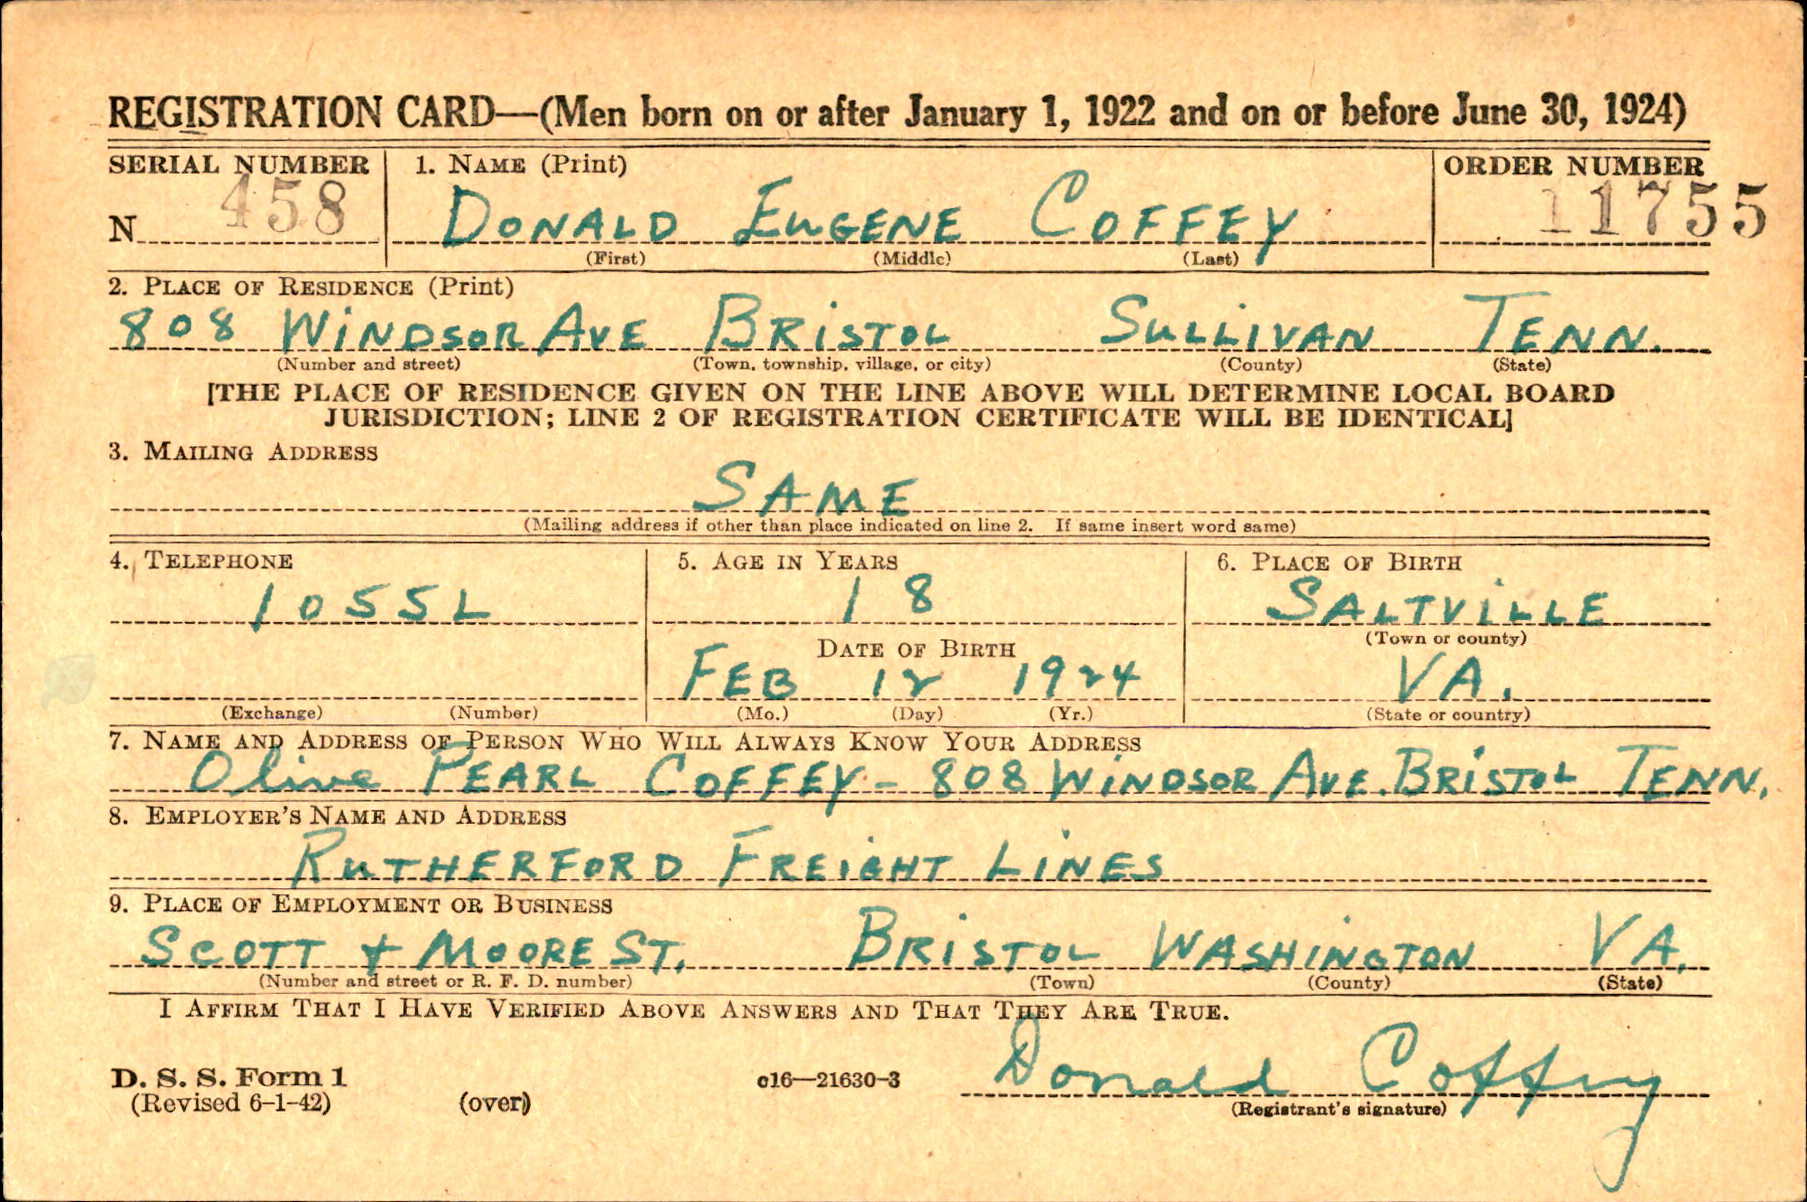 REGISTRATION CARD—(Men born on or after January 1, 1922 and on or before June 30, 1924)
SERIAL NUMBER 1. NAME (Print) ORDER NUMBER
N 458 DONALD EUGENE COFFEY 11755
(First) (Middle) (Last)
2. PLACE OF RESIDENCE (Print)
808 WINDSOR AVE BRISTOL SULLIVAN TENN.
(Number and street) (Town, township, village, or city) (County) (State)
[THE PLACE OF RESIDENCE GIVEN ON THE LINE ABOVE WILL DETERMINE LOCAL BOARD
JURISDICTION; LINE 2 OF REGISTRATION CERTIFICATE WILL BE IDENTICAL]
3. MAILING ADDRESS
SAME
(Mailing address if other than place indicated on line 2. If same insert word same)
4. TELEPHONE 5. AGE IN YEARS 6. PLACE OF BIRTH
1055L 18 SALTVILLE
(Town or county)
DATE OF BIRTH
FEB 12 1924 VA.
(Exchange) (Number) (Mo.) (Day) (Yr.) (State or country)
7. NAME AND ADDRESS OF PERSON WHO WILL ALWAYS KNOW YOUR ADDRESS
Olive PEARL COFFEY - 808 WINDSOR AVE. BRISTOL TENN.
8. EMPLOYER'S NAME AND ADDRESS
RUTHERFORD FREIGHT LINES
9. PLACE OF EMPLOYMENT OR BUSINESS
SCOTT + MOORE ST. BRISTOL WASHINGTON VA.
(Number and street or R. F. D. number) (Town) (County) (State)
I AFFIRM THAT I HAVE VERIFIED ABOVE ANSWERS AND THAT THEY ARE TRUE.
D. S. S. Form 1 c16—21630-3 Donald Coffey
(Revised 6-1-42) (over) (Registrant's signature)